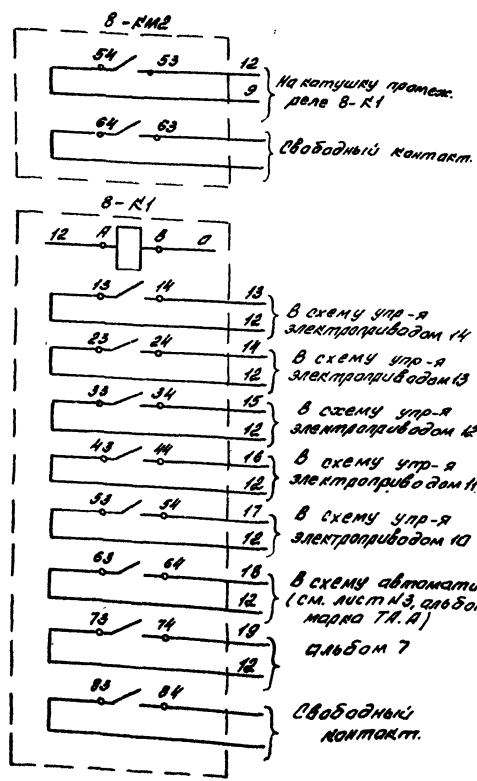 8-КМ2
54 53 12
9
На катушку промеж.
реле 8-К1
64 63
Свободный контакт.
8-К1
12 А В 0
13 14 13
12
В схему упр-я
электроприводом 14
23 24 14
12
В схему упр-я
электроприводом 13
33 34 15
12
В схему упр-я
электроприводом 12
43 44 16
12
В схему упр-я
электроприводом 11
53 54 17
12
В схему упр-я
электроприводом 10
63 64 18
12
В схему автомати
(см. лист N3, альбом
марка ТА.А)
73 74 19
12
альбом 7
83 84
Свободный
контакт.